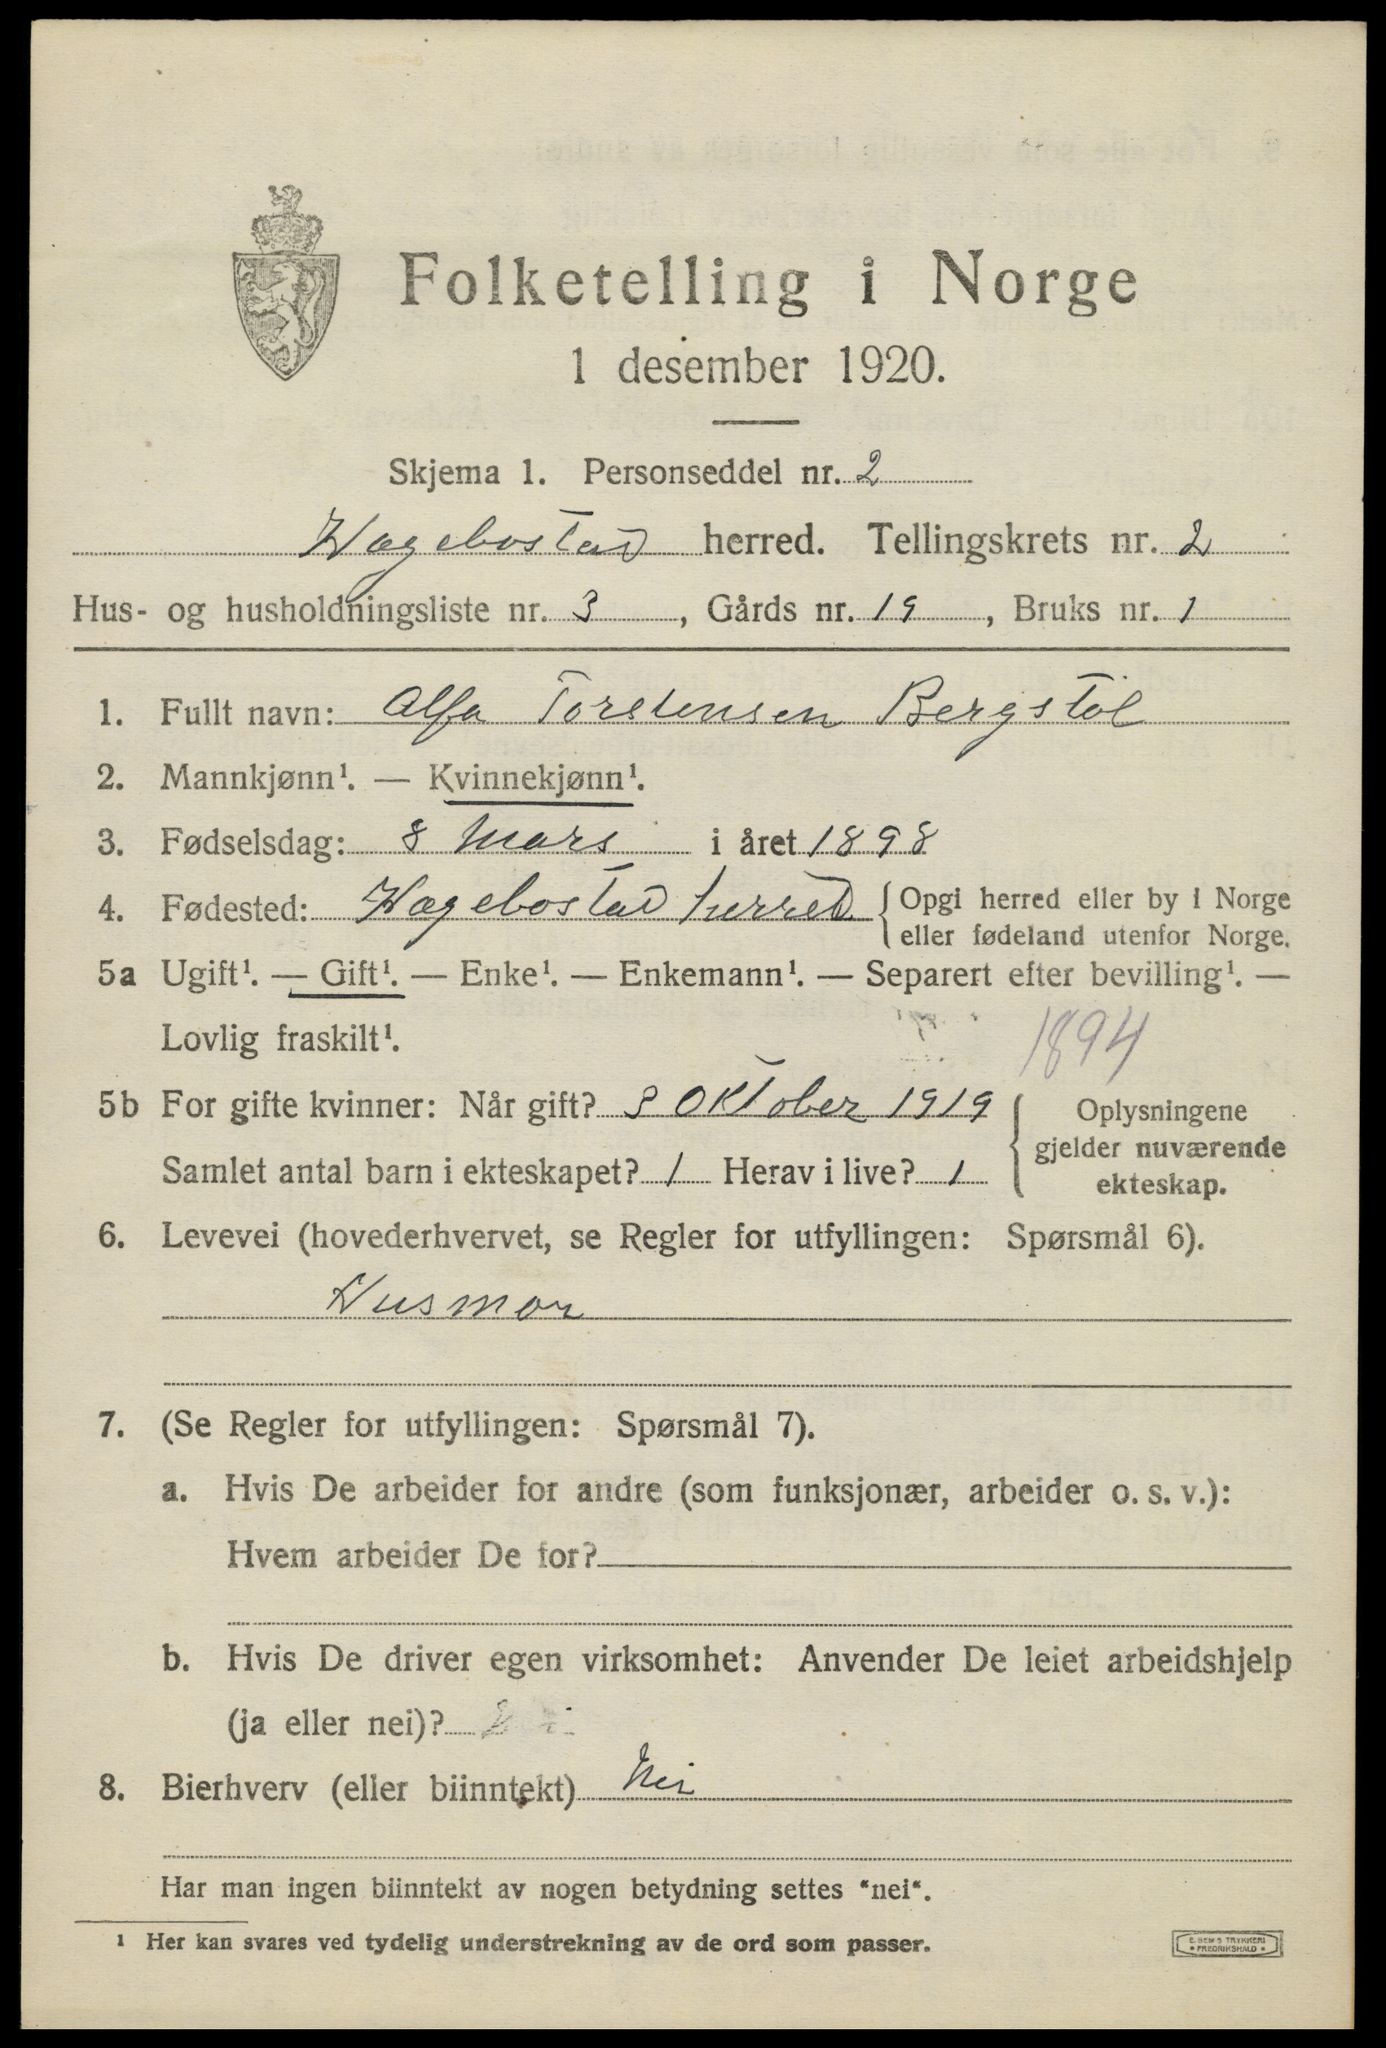 Folketelling i Norge
1 desember 1920.
Skjema 1. Personseddel nr. 2
Hægebostad herred. Tellingskrets nr. 2
Hus- og husholdningsliste nr. 3, Gårds nr. 19, Bruks nr. 1
1. Fullt navn: Alfa Torstensen Bergstøl
2. Mannkjønn¹. — Kvinnekjønn¹.
3. Fødselsdag: 8 Mars i året 1898
4. Fødested: Hægebostad herred { Opgi herred eller by i Norge
eller fødeland utenfor Norge.
5a Ugift¹. — Gift¹. — Enke¹. — Enkemann¹. — Separert efter bevilling¹. —
Lovlig fraskilt¹.
1894
5b For gifte kvinner: Når gift? 3 Oktober 1919
Samlet antal barn i ekteskapet? 1 Herav i live? 1
Oplysningene
gjelder nuværende
ekteskap.
6. Levevei (hovederhvervet, se Regler for utfyllingen: Spørsmål 6).
Husmor
7. (Se Regler for utfyllingen: Spørsmål 7).
a. Hvis De arbeider for andre (som funksjonær, arbeider o. s. v.):
Hvem arbeider De for?
b. Hvis De driver egen virksomhet: Anvender De leiet arbeidshjelp
(ja eller nei)?
8. Bierhverv (eller biinntekt) Nei
Har man ingen biinntekt av nogen betydning settes "nei".
¹ Her kan svares ved tydelig understrekning av de ord som passer.
E. SEM'S TRYKKERI
• FREDRIKSHALD •